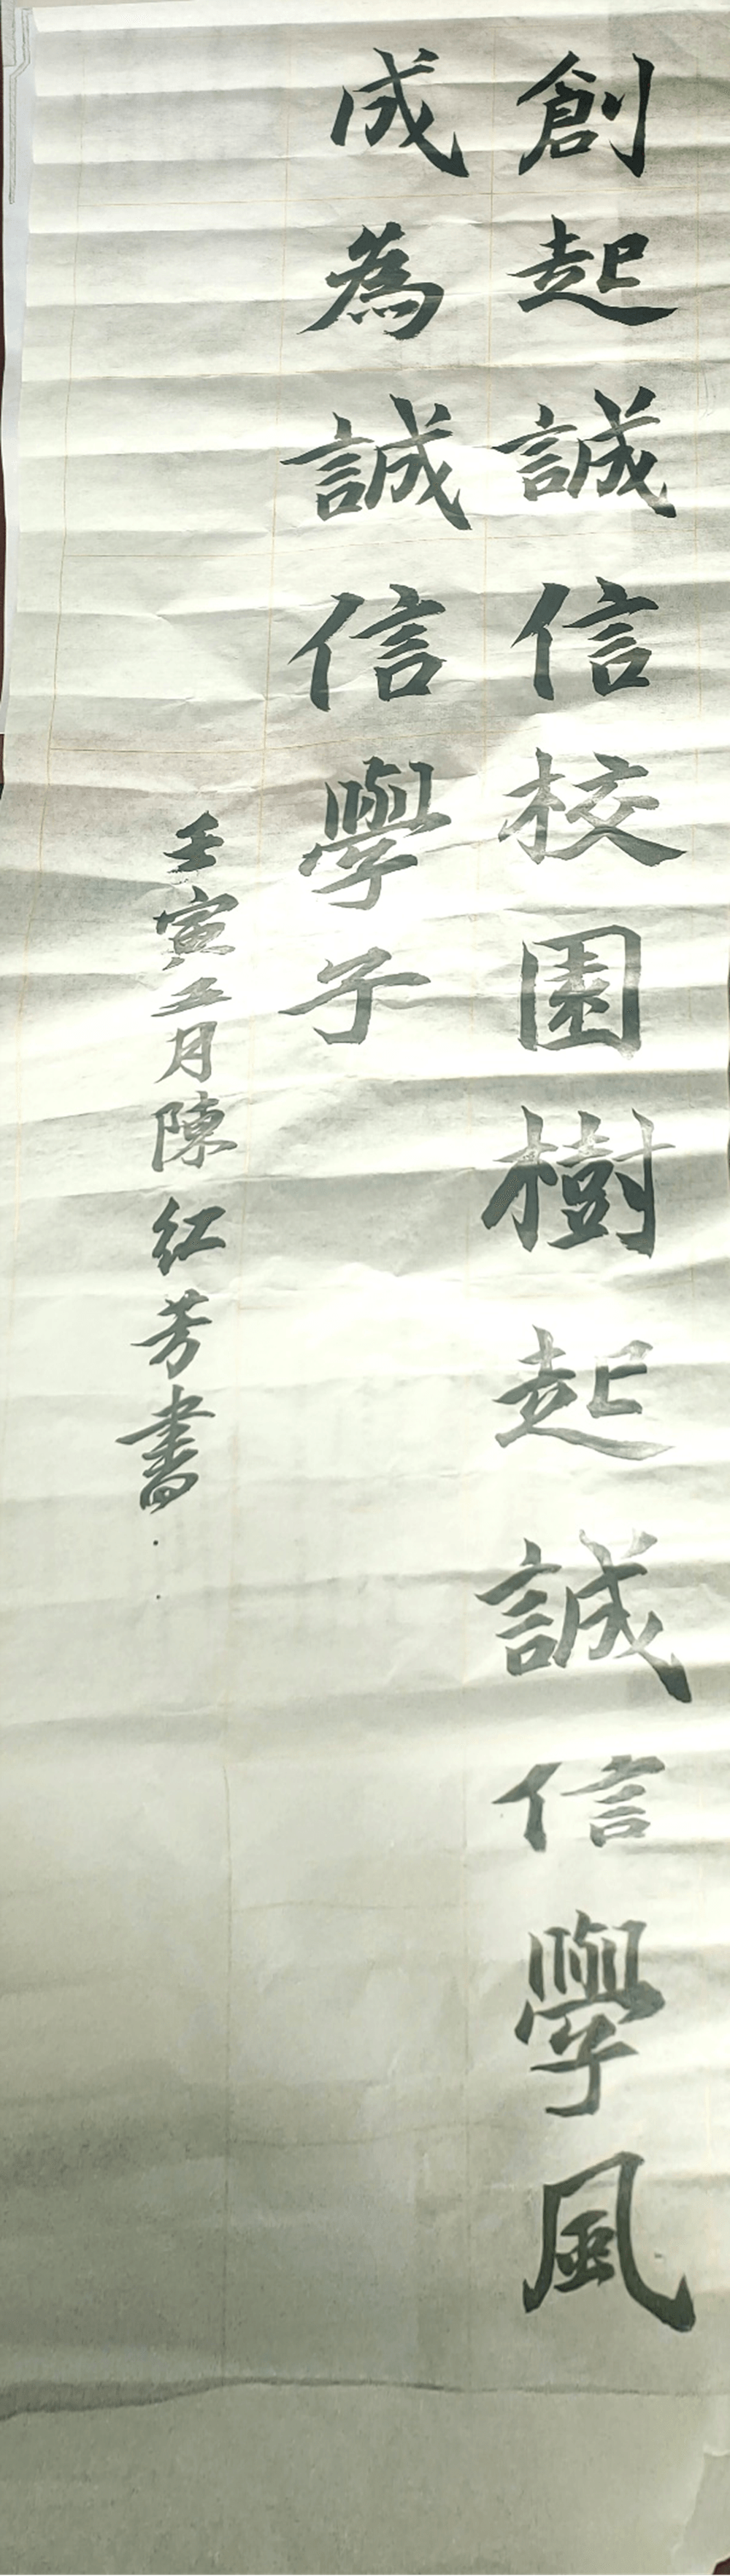 創起誠信校園樹起誠信學風
成為誠信學子
壬寅五月陳红芳書